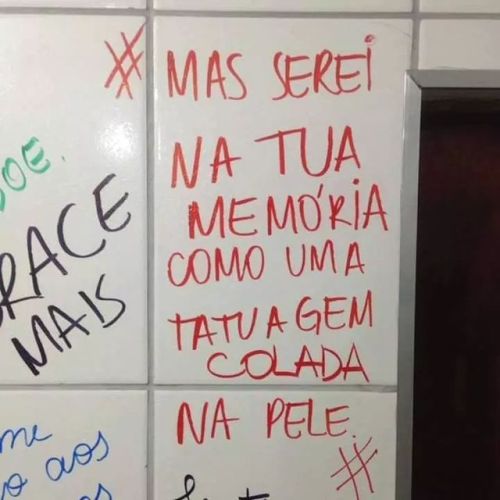 # MAS SEREI
NA TUA
MEMÓRIA
COMO UMA
TATUAGEM
COLADA
NA PELE.
#
DOE.
RACE
MAIS
me
o aos